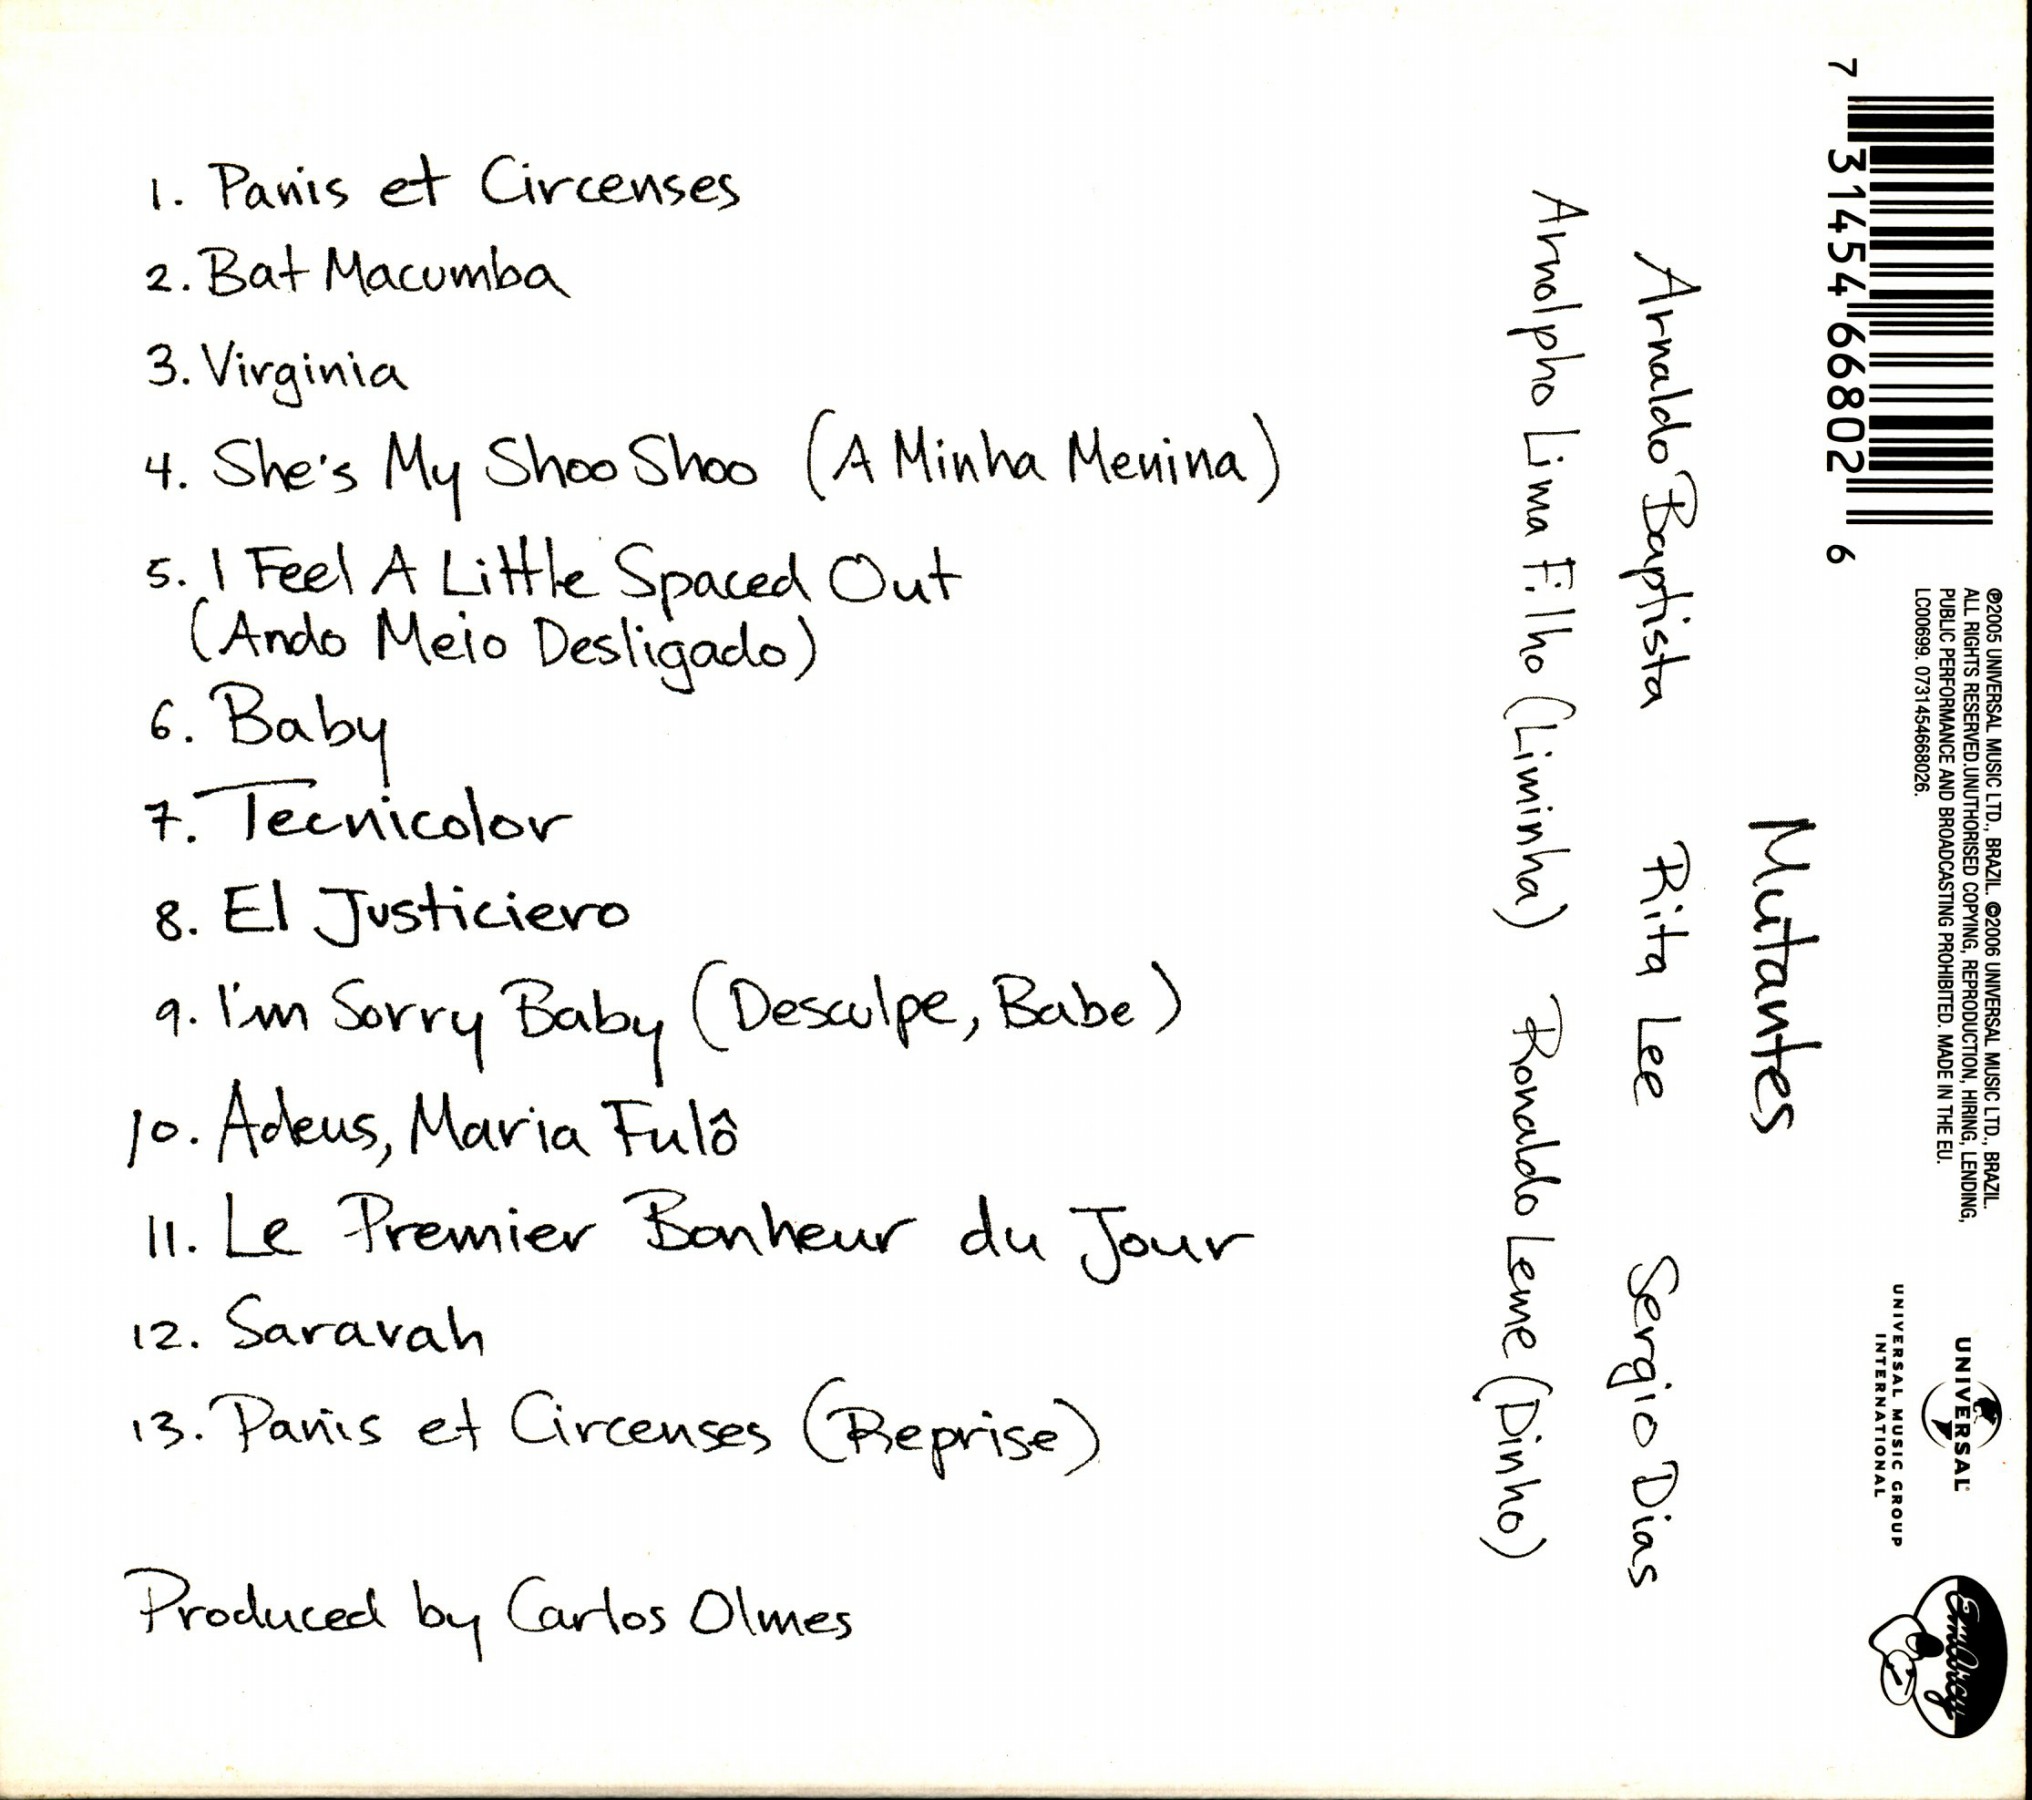 1. Panis et Circenses
2. Bat Macumba
3. Virginia
4. She's My Shoo Shoo (A Minha Menina)
5. I Feel A Little Spaced Out
(Ando Meio Desligado)
6. Baby
7. Tecnicolor
8. El Justiciero
9. I'm Sorry Baby (Desculpe, Babe)
10. Adeus, Maria Fulô
11. Le Premier Bonheur du Jour
12. Saravah
13. Panis et Circenses (Reprise)
Produced by Carlos Olmes
Mutantes
Arnaldo Baptista Rita Lee Sergio Dias
Arnolpho Lima Filho (Liminha) Ronaldo Leme (Dinho)
7 31454 66802 6
℗2005 UNIVERSAL MUSIC LTD., BRAZIL. ©2006 UNIVERSAL MUSIC LTD., BRAZIL.
ALL RIGHTS RESERVED.UNUTHORISED COPYING, REPRODUCTION, HIRING, LENDING,
PUBLIC PERFORMANCE AND BROADCASTING PROHIBITED. MADE IN THE EU.
LC00699. 0731454668026.
UNIVERSAL
UNIVERSAL MUSIC GROUP
INTERNATIONAL
Embricy